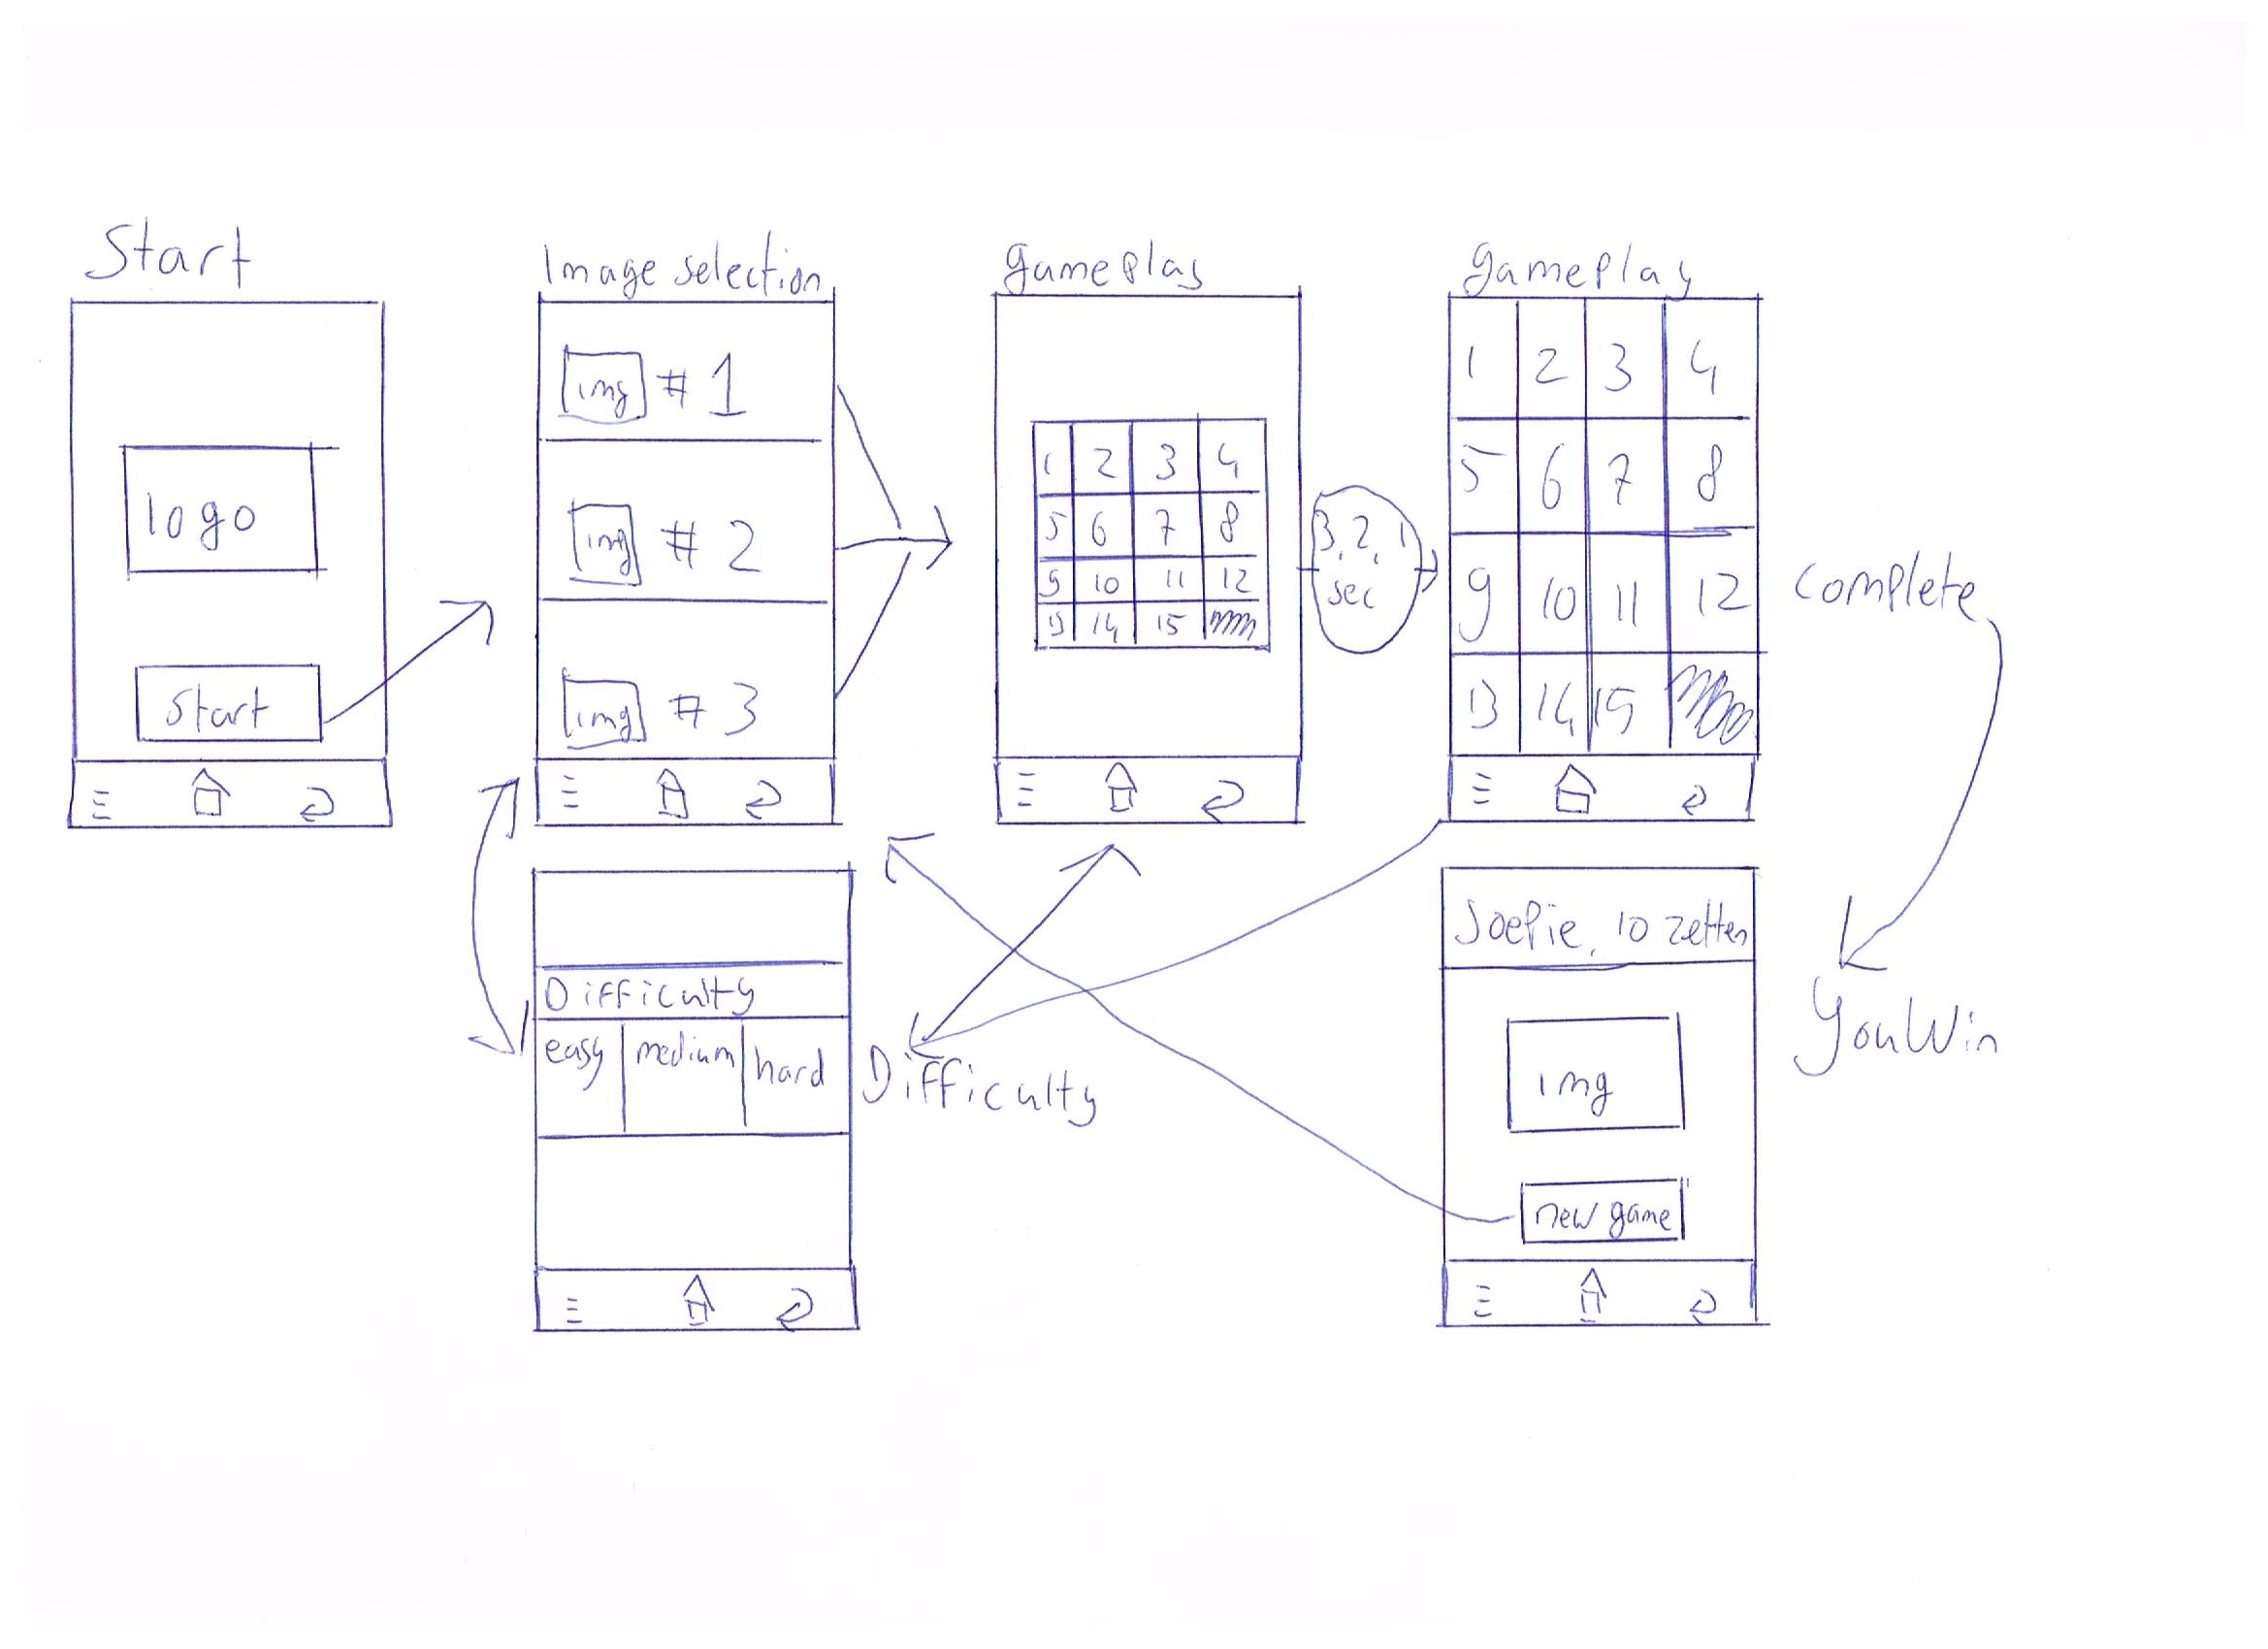 Start
logo
start
Image selection
img # 1
img # 2
img # 3
gameplay
1 2 3 4
5 6 7 8
9 10 11 12
13 14 15
3, 2, 1
sec
gameplay
1 2 3 4
5 6 7 8
9 10 11 12
13 14 15
complete
Difficulty
easy medium hard
Difficulty
Joepie, 10 zetten
img
new game
YouWin